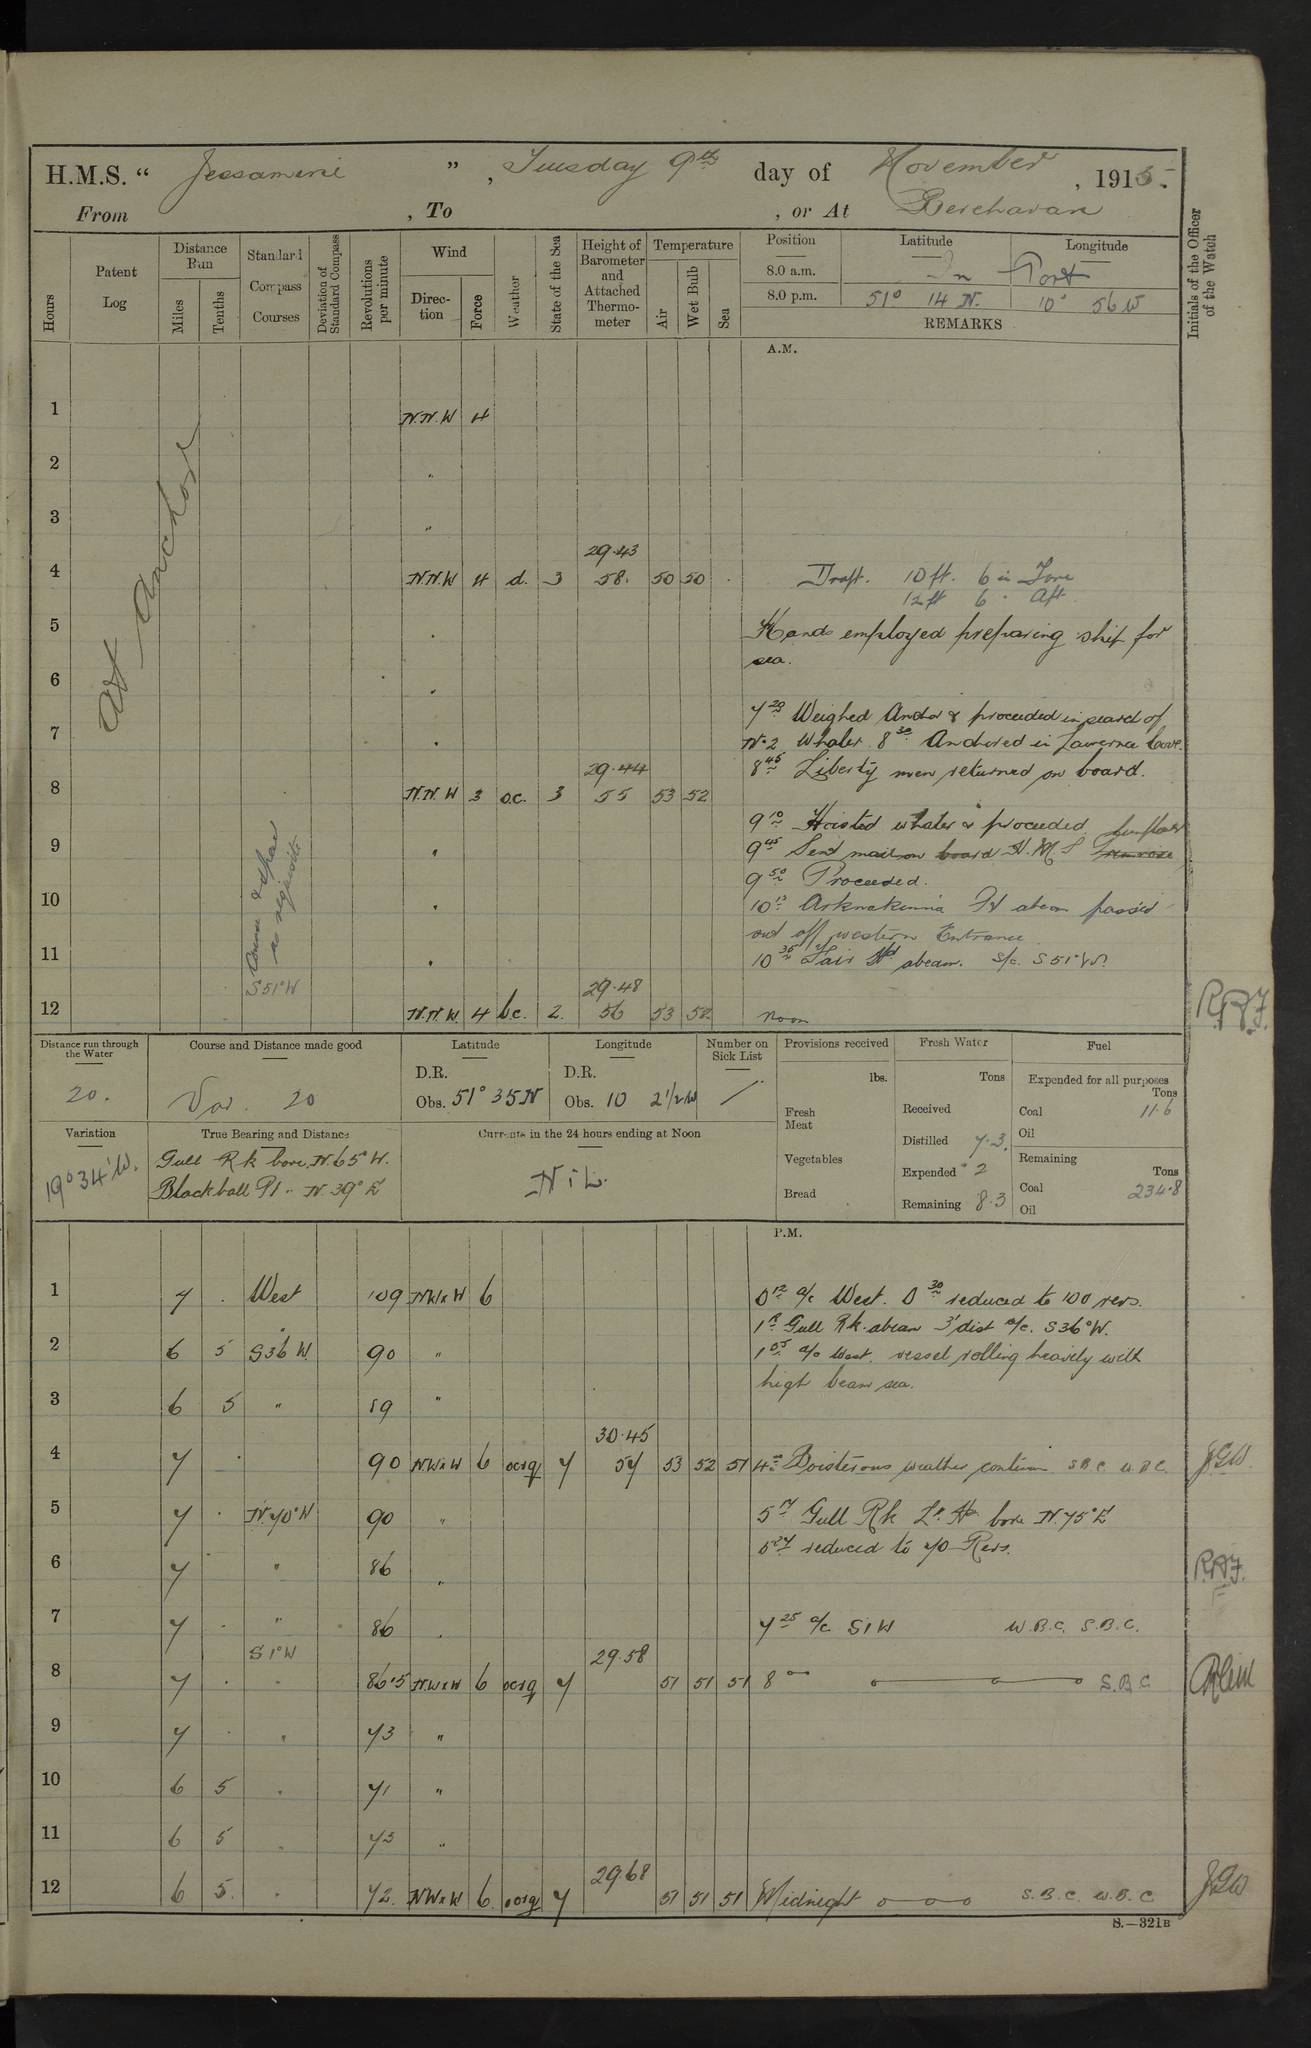 H.M.S. " Jessamine ", Tuesday 9th day of November, 1915.
From , To , or At Berehaven
Hours
Patent Log
Distance Run
Miles Tenths
Standard Compass Courses
Deviation of Standard Compass
Revolutions per minute
Wind
Direction Force
Weather
State of the Sea
Height of Barometer and Attached Thermometer
Temperature
Air Wet Bulb Sea
Position Latitude Longitude
8.0 a.m. In Port
8.0 p.m. 51° 14 N. 10° 56 W
REMARKS
Initials of the Officer of the Watch
A.M.
At Anchor
1 N.N.W 4
2 "
3 "
29.43
4 N.N.W 4 d. 3 58. 50 50 Draft. 10 ft. 6 in Fore
12 ft 6 " Aft
5 " Hands employed preparing ship for
sea.
6 "
7 20 Weighed Anchor & proceeded in search of
7 " No 2 Whaler. 8 30 Anchored in Lawrence Cove.
29.44 8 45 Liberty men returned on board.
8 N.N.W 3 o.c. 3 55 53 52
9 10 Hoisted whaler & proceeded
9 " 9 45 Sent mail on board H.M.S Primrose Sunflower
9 50 Proceeded.
10 " 10 15 abeam passed
out off western Entrance.
11 " 10 35 Fair Hd abeam. S/c. S 51° W.
Course & speed
as requisite
S 51° W
29.48
12 N.N.W. 4 b.c. 2. 56 53 52 Noon R.A.F.
Distance run through the Water
20.
Course and Distance made good
Var. 20
Latitude
D.R.
Obs. 51° 35 N
Longitude
D.R.
Obs. 10 2 1/2 W
Number on Sick List
/
Provisions received
lbs.
Fresh Meat
Vegetables
Bread
Fresh Water
Tons
Received
Distilled 7.3
Expended 2
Remaining 8.3
Fuel
Expended for all purposes
Tons
Coal 11.6
Oil
Remaining
Tons
Coal 234.8
Oil
Variation
19° 34' W.
True Bearing and Distance
Gull Rk bore N. 65° W.
Blackball Pt " N. 39° E
Currents in the 24 hours ending at Noon
NiL.
P.M.
1 7 . West 109 NWxW 6 0 12 a/c West. 0 30 reduced to 100 revs.
1 0 Gull Rk. abeam 3' dist a/c. S36°W.
2 6 5 S36°W. 90 " 1 05 a/c West. vessel rolling heavily with
high beam sea.
3 6 5 " 89 "
30.45
4 7 . 90 NWxW 6 ocrq 7 57 53 52 51 4 00 Boisterous weather continues S.B.C. W.B.C. JGW
5 7 . N.70°W 90 " 5 17 Gull Rk Lt Ho bore N.75°E
5 27 reduced to 70 Revs.
6 7 " 86 " R.A.F.
7 7 . " 86 . 7 25 a/c S1W W.B.C. S.B.C.
S1°W 29.58
8 7 . . 86.5 N.WxW 6 ocrq 7 51 51 51 8 00 S.B.C
9 7 . " 73 "
10 6 5 . 71 "
11 6 5 . 73 "
29.68
12 6 5. . 72. NWxW 6. ocrq 7 51 51 51 Midnight S.B.C. W.B.C JGW
S.—321B